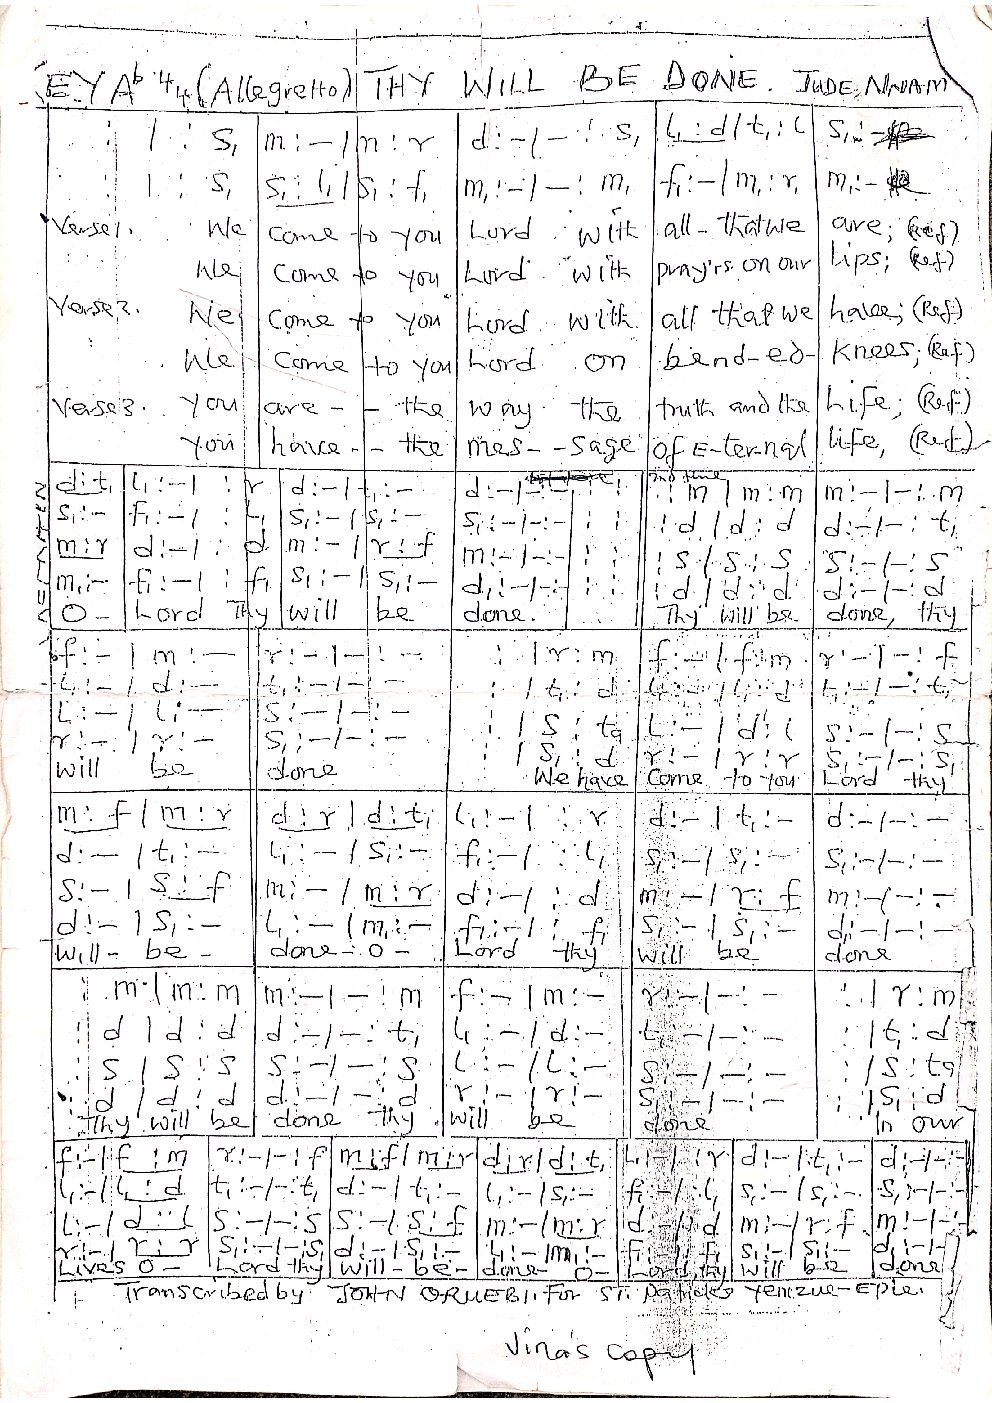 KEY Ab 4/4 (Allegretto) THY WILL BE DONE. JUDE NNAM
: | : s, | m : - | m : r | d : - | - : s, | l, : d | t, : l | s, : -
: | : s, | s, : l, | s, : f, | m, : - | - : m, | f, : - | m, : r, | m, : -
Verse1. We come to you Lord with all - that we are; (Ref)
We come to you Lord with pray'rs on our lips; (Ref)
Verse2. We come to you Lord with all that we have; (Ref)
We come to you Lord on bend-ed- knees; (Ref)
Verse3. You are - - the way the truth and the Life; (Ref)
You have - - the mes - - sage of E-ternal life, (Ref)
2nd time
d : t, | l, : - | : r | d : - | t, : - | d : - | - : - | : m | m : m | m : - | - : m
s, : - | f, : - | : l, | s, : - | s, : - | s, : - | - : - | : : | : d | d : d | d : - | - : t,
m : r | d : - | : d | m : - | r : f | m : - | - : - | : : | : s | s : s | s : - | - : s
m, : - | f, : - | : f, | s, : - | s, : - | d, : - | - : - | : : | : d | d : d | d : - | - : d
O - Lord Thy will be done. Thy will be done, thy
f : - | m : - | r : - | - : - | : | r : m | f : - | f : m | r : - | - : f
l, : - | d : - | t, : - | - : - | : | t, : d | l, : - | l, : d | t, : - | - : t,
l : - | l : - | s : - | - : - | : | s : ta | l : - | d' : l | s : - | - : s
r : - | r : - | s, : - | - : - | : | s, : d | r : - | r : r | s, : - | - : s,
will be done We have Come to you Lord thy
m : f | m : r | d : r | d : t, | l, : - | : r | d : - | t, : - | d : - | - : -
d : - | t, : - | l, : - | s, : - | f, : - | : l, | s, : - | s, : - | s, : - | - : -
s : - | s : f | m : - | m : r | d : - | : d | m : - | r : f | m : - | - : -
d : - | s, : - | l, : - | m, : - | f, : - | : f, | s, : - | s, : - | d, : - | - : -
will - be - done - O - Lord thy will be done
: m | m : m | m : - | - : m | f : - | m : - | r : - | - : - | : | r : m
: d | d : d | d : - | - : t, | l, : - | d : - | t, : - | - : - | : | t, : d
: s | s : s | s : - | - : s | l : - | l : - | s : - | - : - | : | s : ta
: d | d : d | d : - | - : d | r : - | r : - | s, : - | - : - | : | s, : d
Thy will be done thy will be done In our
f : - | f : m | r : - | - : f | m : f | m : r | d : r | d : t, | l, : - | : r | d : - | t, : - | d : - | - : -
l, : - | l, : d | t, : - | - : t, | d : - | t, : - | l, : - | s, : - | f, : - | : l, | s, : - | s, : - | s, : - | - : -
l : - | d' : l | s : - | - : s | s : - | s : f | m : - | m : r | d : - | : d | m : - | r : f | m : - | - : -
r : - | r : r | s, : - | - : s, | d : - | s, : - | l, : - | m, : - | f, : - | : f, | s, : - | s, : - | d, : - | - : -
Lives O - Lord thy will - be - done - O - Lord, thy will be done
Transcribed by JOHN ORUEBI. For ST. Patricks Yenezue-Epie.
Vina's Copy